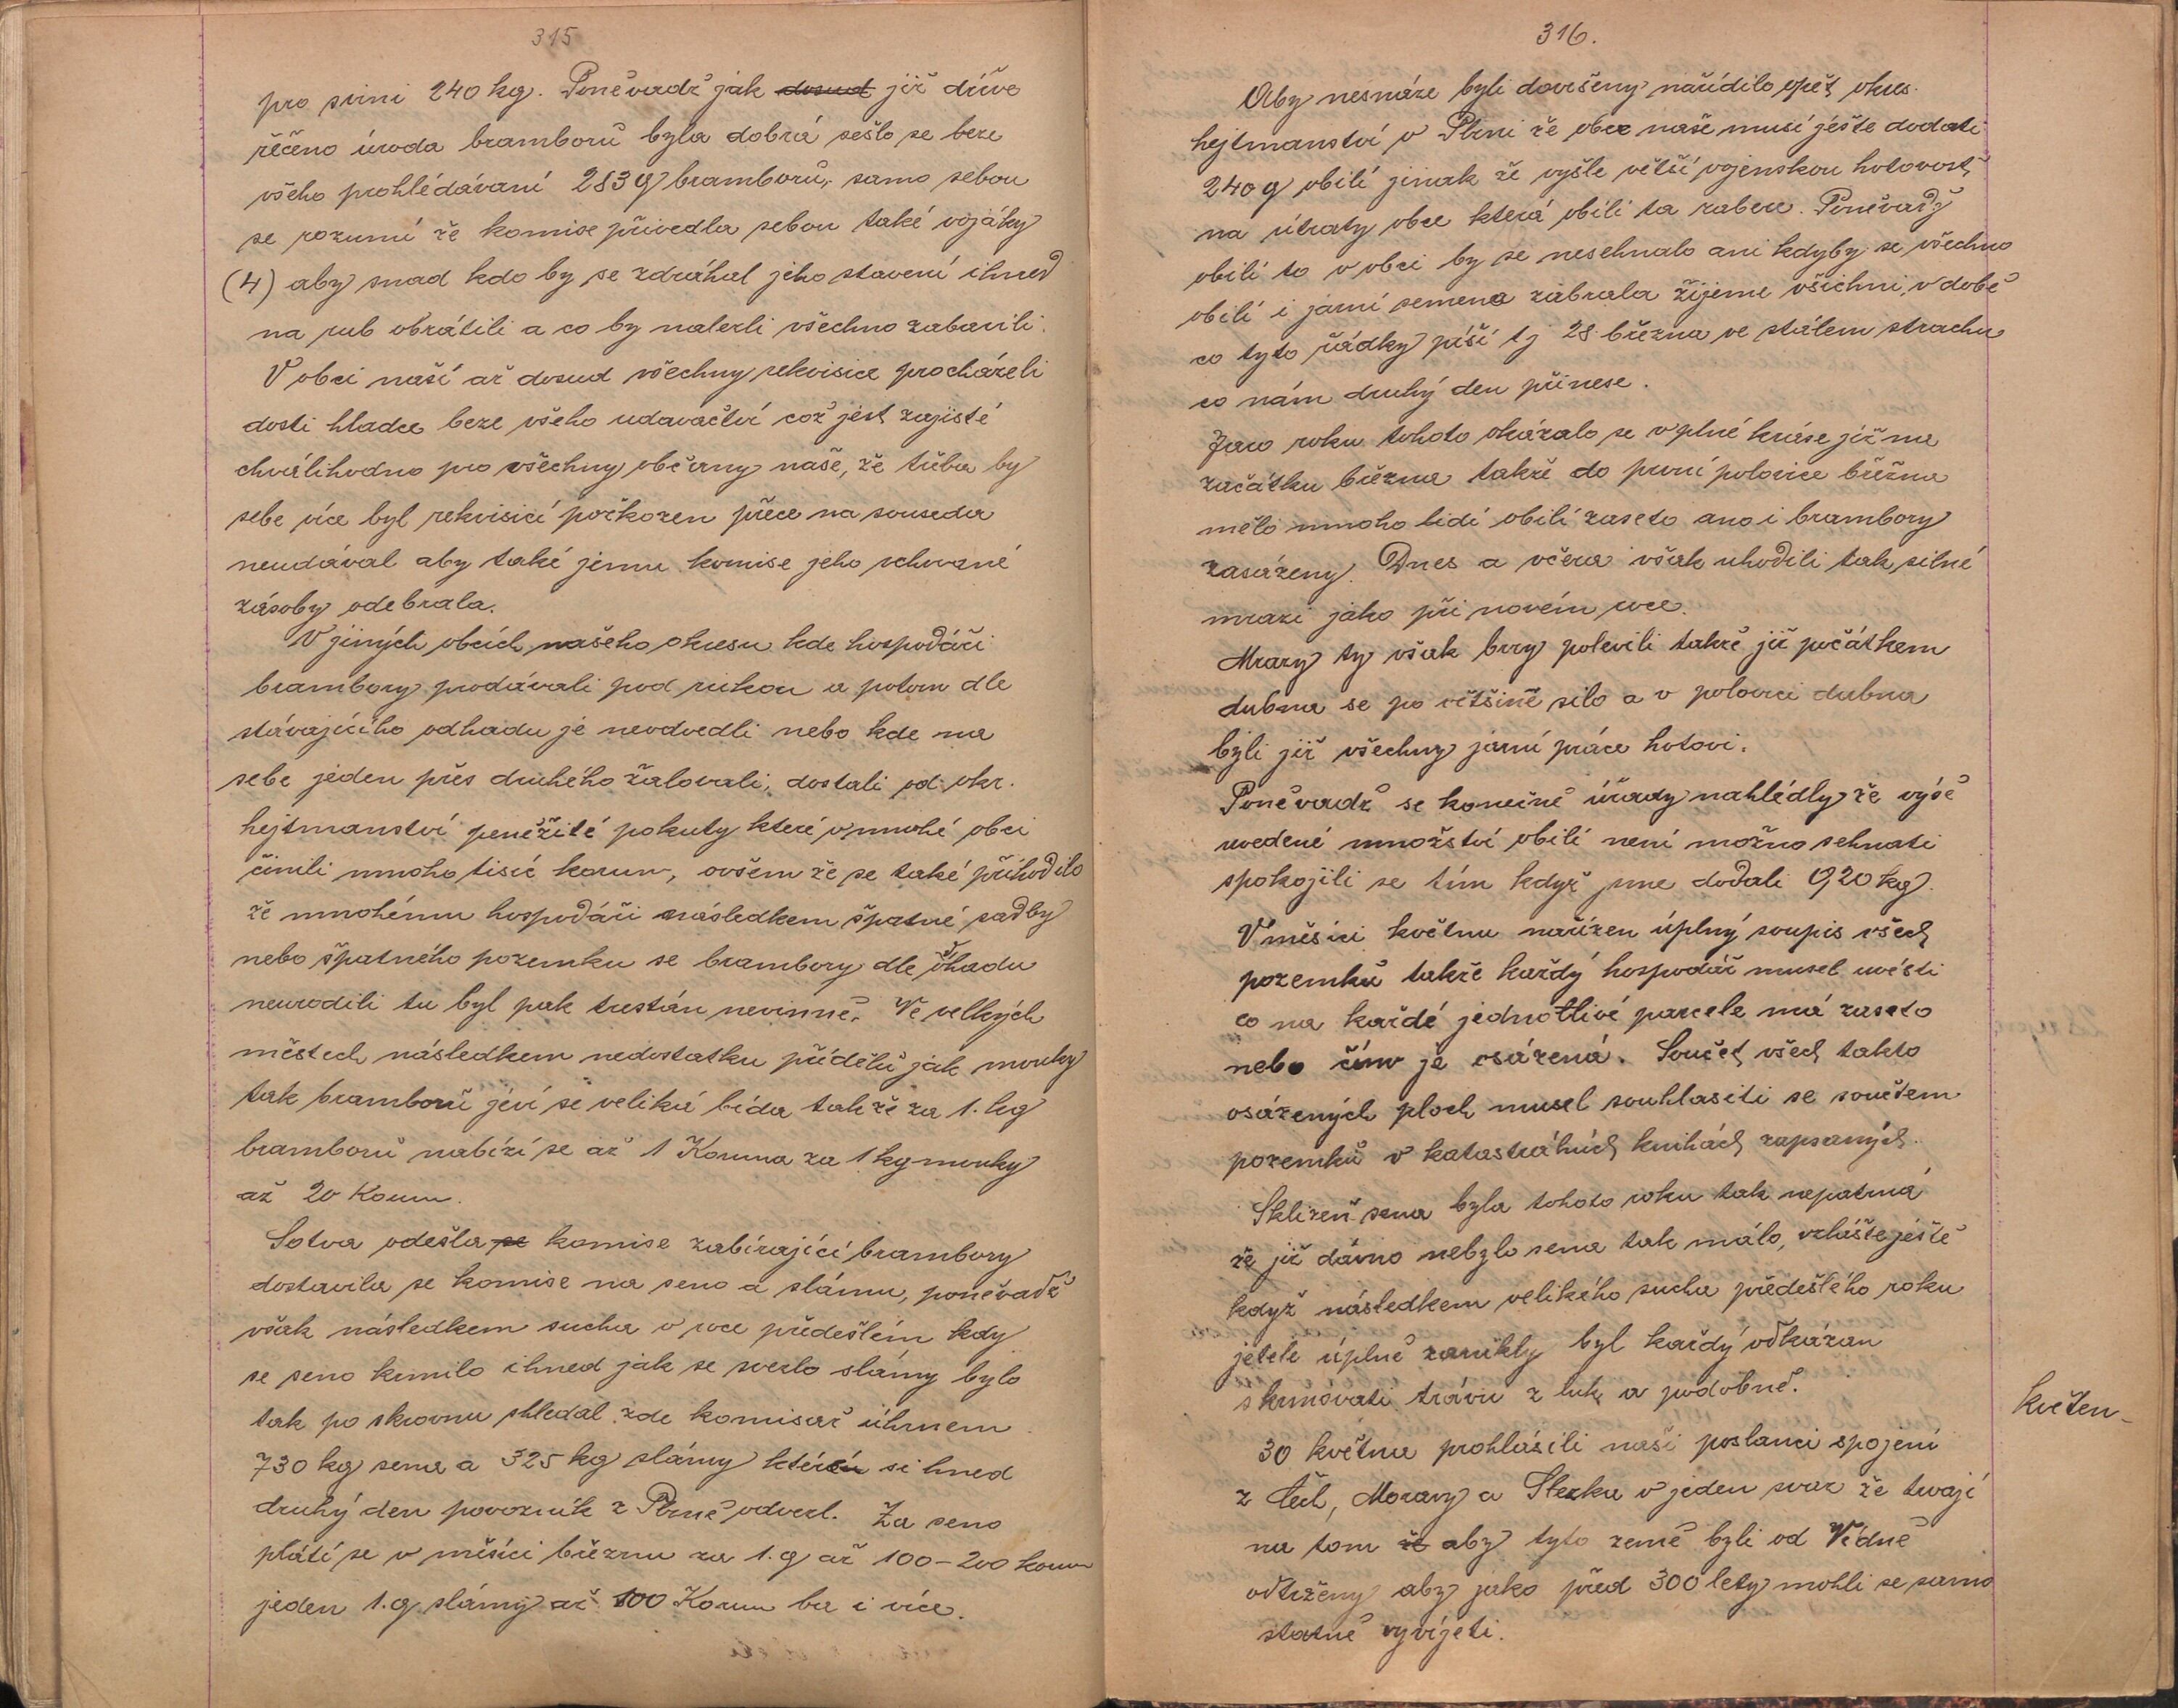 315
pro svini 240 kg. Poněvadž jak dosud již dříve
řečeno úroda bramborů byla dobrá sešlo se beze
všeho prohlédávaní 283 q bramborů, samo sebou
se rozumí že komise přivedla sebou také vojáky
(4) aby snad kdo by se zdráhal jeho stavení ihned
na rub obrátili a co by nalezli všechno zabavili.
V obci naší až dosud všechny rekvisice procházeli
dosti hladce beze všeho udavačtví což jest zajisté
chválihodno pro všechny občany naše, že třeba by
sebe více byl rekvisicí poškozen přece na souseda
neudával aby také jemu komise jeho schované
zásoby odebrala.
V jiných obcích našeho okresu kde hospodáři
brambory prodávali pod rukou a potom dle
stávajícího odhadu je neodvedli nebo kde na
sebe jeden přes druhého žalovali, dostali od okr.
hejtmanství peněžité pokuty které v mnohé obci
činili mnoho tisíc korun, ovšem že se také přihodilo
že mnohému hospodáři následkem špatné sadby
nebo špatného pozemku se brambory dle odhadu
neurodili tu byl pak trestán nevinně. Ve velkých
městech následkem nedostatku přídělů jak mouky
tak bramborů jeví se veliká bída takže za 1. kg
bramborů nabízí se až 1 Koruna za 1 kg mouky
až 20 Korun.
Sotva odešla se komise zabírající brambory
dostavila se komise na seno a slámu, poněvadž
však následkem sucha v roce předešlém kdy
se seno krmilo ihned jak se svezlo slámy bylo
tak po skrovnu shledal zde komisař úhrnem
730 kg sena a 325 kg slámy si hned
druhý den povozník z Plzně odvezl. Za seno
platí se v měsíci březnu za 1. q až 100-200 korun
jeden 1. q slámy až 100 Korun ba i více.
316.
Aby nesnáze byli dovršeny nařídilo opět okres.
hejtmanství v Plzni že obec naše musí ješte dodati
240 q obilí jinak že vyšle větší vojenskou hotovost
na útraty obce která obilí ta zabere. Poněvadž
obilí to v obci by se nesehnalo ani kdyby se všechno
obilí i jarní semena zabrala žijeme všichni, v době
co tyto řádky píší tj 28 března ve stálem strachu
co nám druhý den přinese.
Jaro roku tohoto ukázalo se v plné kráse již na
začátku března takže do první polovice března
mělo mnoho lidí obilí zaseto ano i brambory
zasázeny. Dnes a včera však uhodili tak silné
mrazi jako při novém roce.
Mrazy ty však brzy polevili takže již počátkem
dubna se po většině silo a v polovici dubna
byli již všechny jarní práce hotovi.
Poněvadž se konečně úřady nahlédly že výše
uvedené množství obilí není možno sehnati
spokojili se tím když jsme dodali 920 kg.
V měsíci květnu nařízen úplný soupis všech
pozemků takže každý hospodář musel uvésti
co na každé jednotlivé parcele má zaseto
nebo čím je osázená. Součet všech takto
osázených ploch musel souhlasiti se součtem
pozemků v katastrálních knihách zapsaných.
Sklizeň sena byla tohoto roku tak nepatrná
že již dávno nebylo sena tak málo, vzláště ještě
když následkem velikého sucha předešlého roku
jetele úplně zanikly byl každý odkázan
skrmovati trávu z luk a podobně.
Květen
30 května prohlásili naši poslanci spojení
z Čech, Moravy a Slezka v jeden svaz že trvají
na tom že aby tyto země byli od Vídně
odtrženy aby jako před 300 lety mohli se samo
statně vyvíjeti.